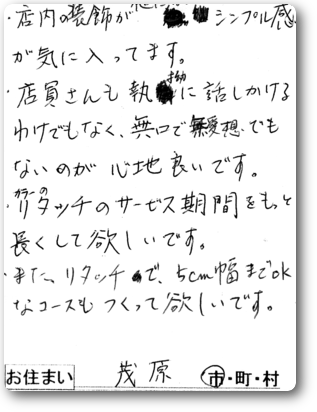 ・店内の装飾が シンプル感
が気に入ってます。
・店員さんも執拗に話しかける
わけでもなく、無口で無愛想でも
ないのが心地良いです。
・カラーのリタッチのサービス期間をもっと
長くして欲しいです。
・また、リタッチで、5cm幅までok
なコースもつくって欲しいです。
お住まい 茂原 市・町・村